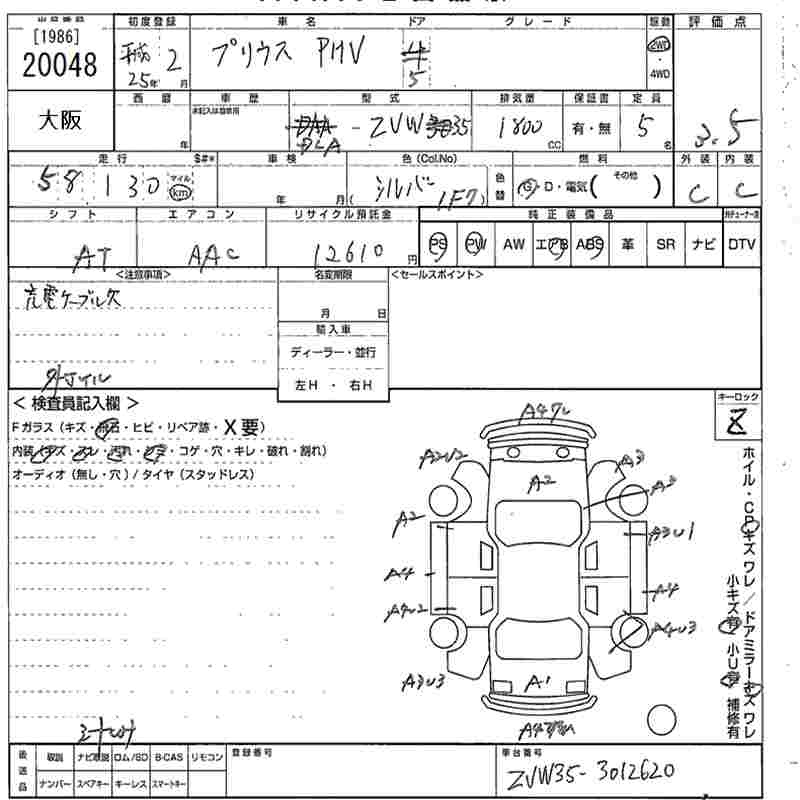 出品番号 初度登録 車名 ドア グレード 駆動 評価点
[1986]
20048 平成 25年 2月 プリウス PHV 4 5 2WD ・ 4WD
大阪 西暦 車歴 型式 排気量 保証書 定員
年 未記入は自家用 DAA DLA - ZVW 35 1800 CC 有・無 5 名 3.5
走行 $#* 車検 色 (Col.No) 燃料 外装 内装
58130 マイル km 年 月 ( シルバー 1F7 ) 色替 G・D・電気 ( その他 ) C C
シフト エアコン リサイクル預託金 純正装備品
AT AAC 12610 円 PS PW AW エアB ABS 革 SR ナビ DTV
<注意事項> 名変期限 <セールスポイント>
充電ケーブル欠
月 日
輸入車
ディーラー・並行
左H ・ 右H
< 検査員記入欄 > キーロック
Fガラス (キズ・飛石・ヒビ・リペア跡・X要)
内装 (キズ・スレ・汚れ・シミ・コゲ・穴・キレ・破れ・割れ)
オーディオ (無し・穴) / タイヤ (スタッドレス)
A2U2 A2 A3 A2
A2 A3U1
A4 A4
A4U2 A4U3
A3U3 A1
ホイル・CPキズ ワレ / ドアミラーキズ ワレ
小キズ有 小U有 補修有
後送品 取説 ナビ取説 ロム/SD B-CAS リモコン 登録番号 車台番号
ナンバー スペアキー キーレス スマートキー ZVW35-3012620